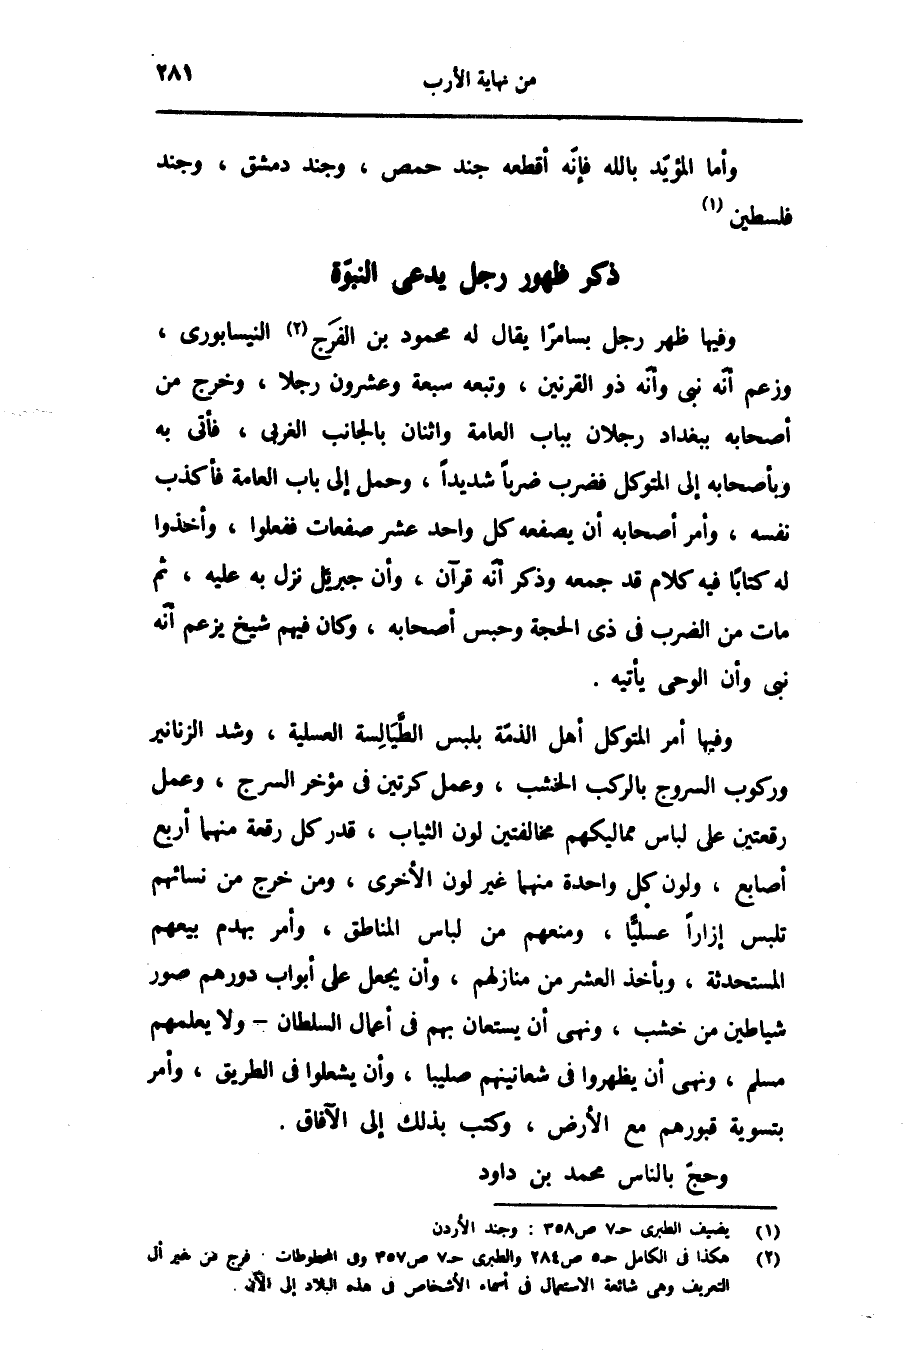 من نهاية الأرب ٢٨١
وأما المؤيّد بالله فإنّه أقطعه جند حمص ، وجند دمشق ، وجند
فلسطين (١)
ذكر ظهور رجل يدعى النبوّة
وفيها ظهر رجل بسامرّا يقال له محمود بن الفَرَج (٢) النيسابورى ،
وزعم أنّه نبى وأنّه ذو القرنين ، وتبعه سبعة وعشرون رجلا ، وخرج من
أصحابه ببغداد رجلان بباب العامة واثنان بالجانب الغربى ، فأتى به
وبأصحابه إلى المتوكل فضرب ضرباً شديداً ، وحمل إلى باب العامة فأكذب
نفسه ، وأمر أصحابه أن يصفعه كل واحد عشر صفعات ففعلوا ، وأخذوا
له كتابًا فيه كلام قد جمعه وذكر أنّه قرآن ، وأن جبريل نزل به عليه ، ثم
مات من الضرب فى ذى الحجة وحبس أصحابه ، وكان فيهم شيخ يزعم أنّه
نبى وأن الوحى يأتيه .
وفيها أمر المتوكل أهل الذمّة بلبس الطَّيَالِسة العسلية ، وشد الزنانير
وركوب السروج بالركب الخشب ، وعمل كرتين فى مؤخر السرج ، وعمل
رقعتين على لباس مماليكهم مخالفتين لون الثياب ، قدر كل رقعة منهما أربع
أصابع ، ولون كل واحدة منهما غير لون الأخرى ، ومن خرج من نسائهم
تلبس إزاراً عسليًّا ، ومنعهم من لباس المناطق ، وأمر بهدم بيعهم
المستحدثة ، وبأخذ العشر من منازلهم ، وأن يجعل على أبواب دورهم صور
شياطين من خشب ، ونهى أن يستعان بهم فى أعمال السلطان – ولا يعلمهم
مسلم ، ونهى أن يظهروا فى شعانينهم صليبا ، وأن يشعلوا فى الطريق ، وأمر
بتسوية قبورهم مع الأرض ، وكتب بذلك إلى الآفاق .
وحجّ بالناس محمد بن داود
(١) يضيف الطبرى حـ٧ ص٣٥٨ : وجند الأردن
(٢) هكذا فى الكامل حـ٥ ص٢٨٤ والطبرى حـ٧ ص٣٥٧ وفى المخطوطات . فرج من غير أل
التعريف وهى شائعة الاستعمال فى أسماء الأشخاص فى هذه البلاد إلى الآن .